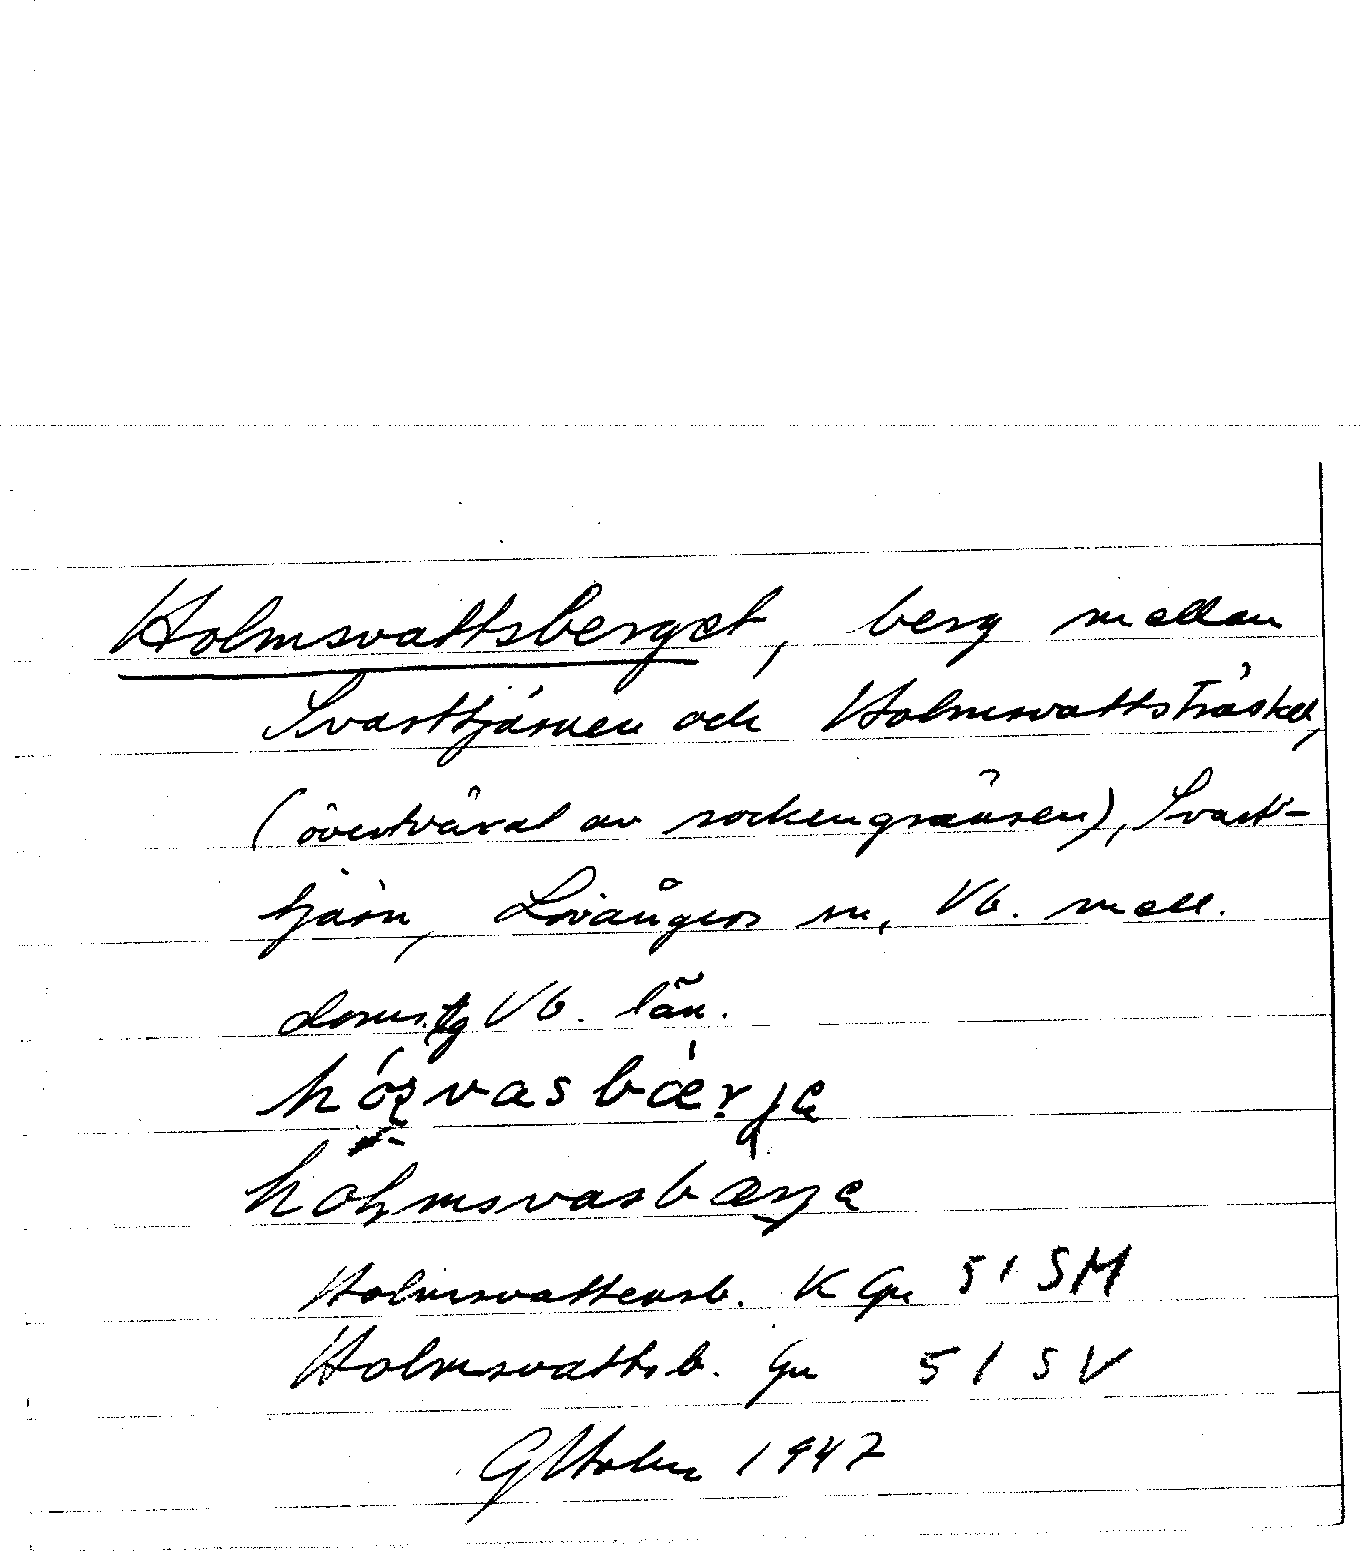 Holmsvattsberget, berg mellan
Svarttjärnen och Holmsvattsträsket,
(övertvärat av sockengränsen), Svart-
tjärn, Lövångers sn, Vb. mell.
doms. tg Vb. län.
Holmsvattensb. K Gn 51 SM
Holmsvattsb. Gn 51 SV
GHolm 1947